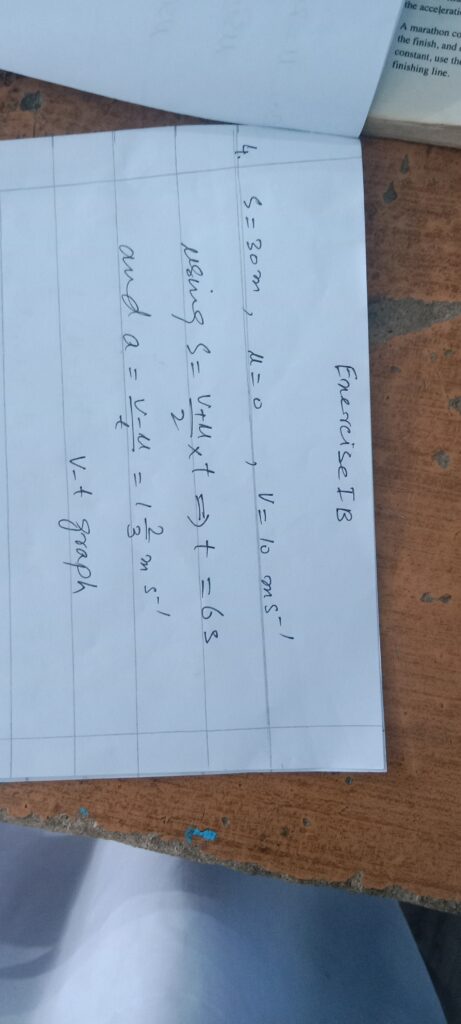 the accelerati
A marathon co
the finish, and
constant, use the
finishing line.
Exercise IB
4. S = 30m, u = 0, V = 10 ms⁻¹
using S = \frac{V+u}{2} × t ⇒ t = 6s
and a = \frac{V-u}{t} = 1\frac{2}{3} m s⁻¹
V-t graph